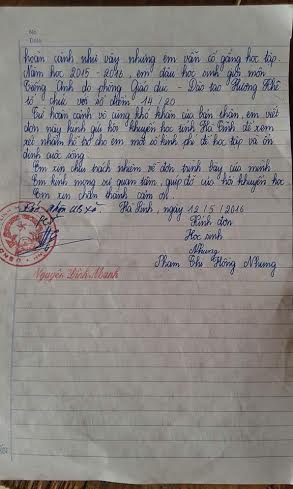 No
Date
hoàn cảnh như vậy nhưng em vẫn cố gắng học tập.
Năm học 2015 - 2016 em đậu học sinh giỏi môn
Tiếng Anh do phòng Giáo dục - Đào tạo Hương Khê
tổ chức với số điểm 14/20
Từ hoàn cảnh vô cùng khó khăn của bản thân em viết
đơn này kính gửi hội khuyến học tỉnh Hà Tĩnh để xem
xét nhằm hỗ trợ cho em một số kinh phí để học tập và ổn
định cuộc sống.
Em xin chịu trách nhiệm về đơn trình bày của mình.
Em kính mong sự quan tâm, giúp đỡ của hội khuyến học
Em xin chân thành cảm ơn.
Hà Tĩnh, ngày 12/5/2016
Kính đơn
Học sinh
Nhung
Phạm Thị Hồng Nhung
Nguyễn Đình Manh